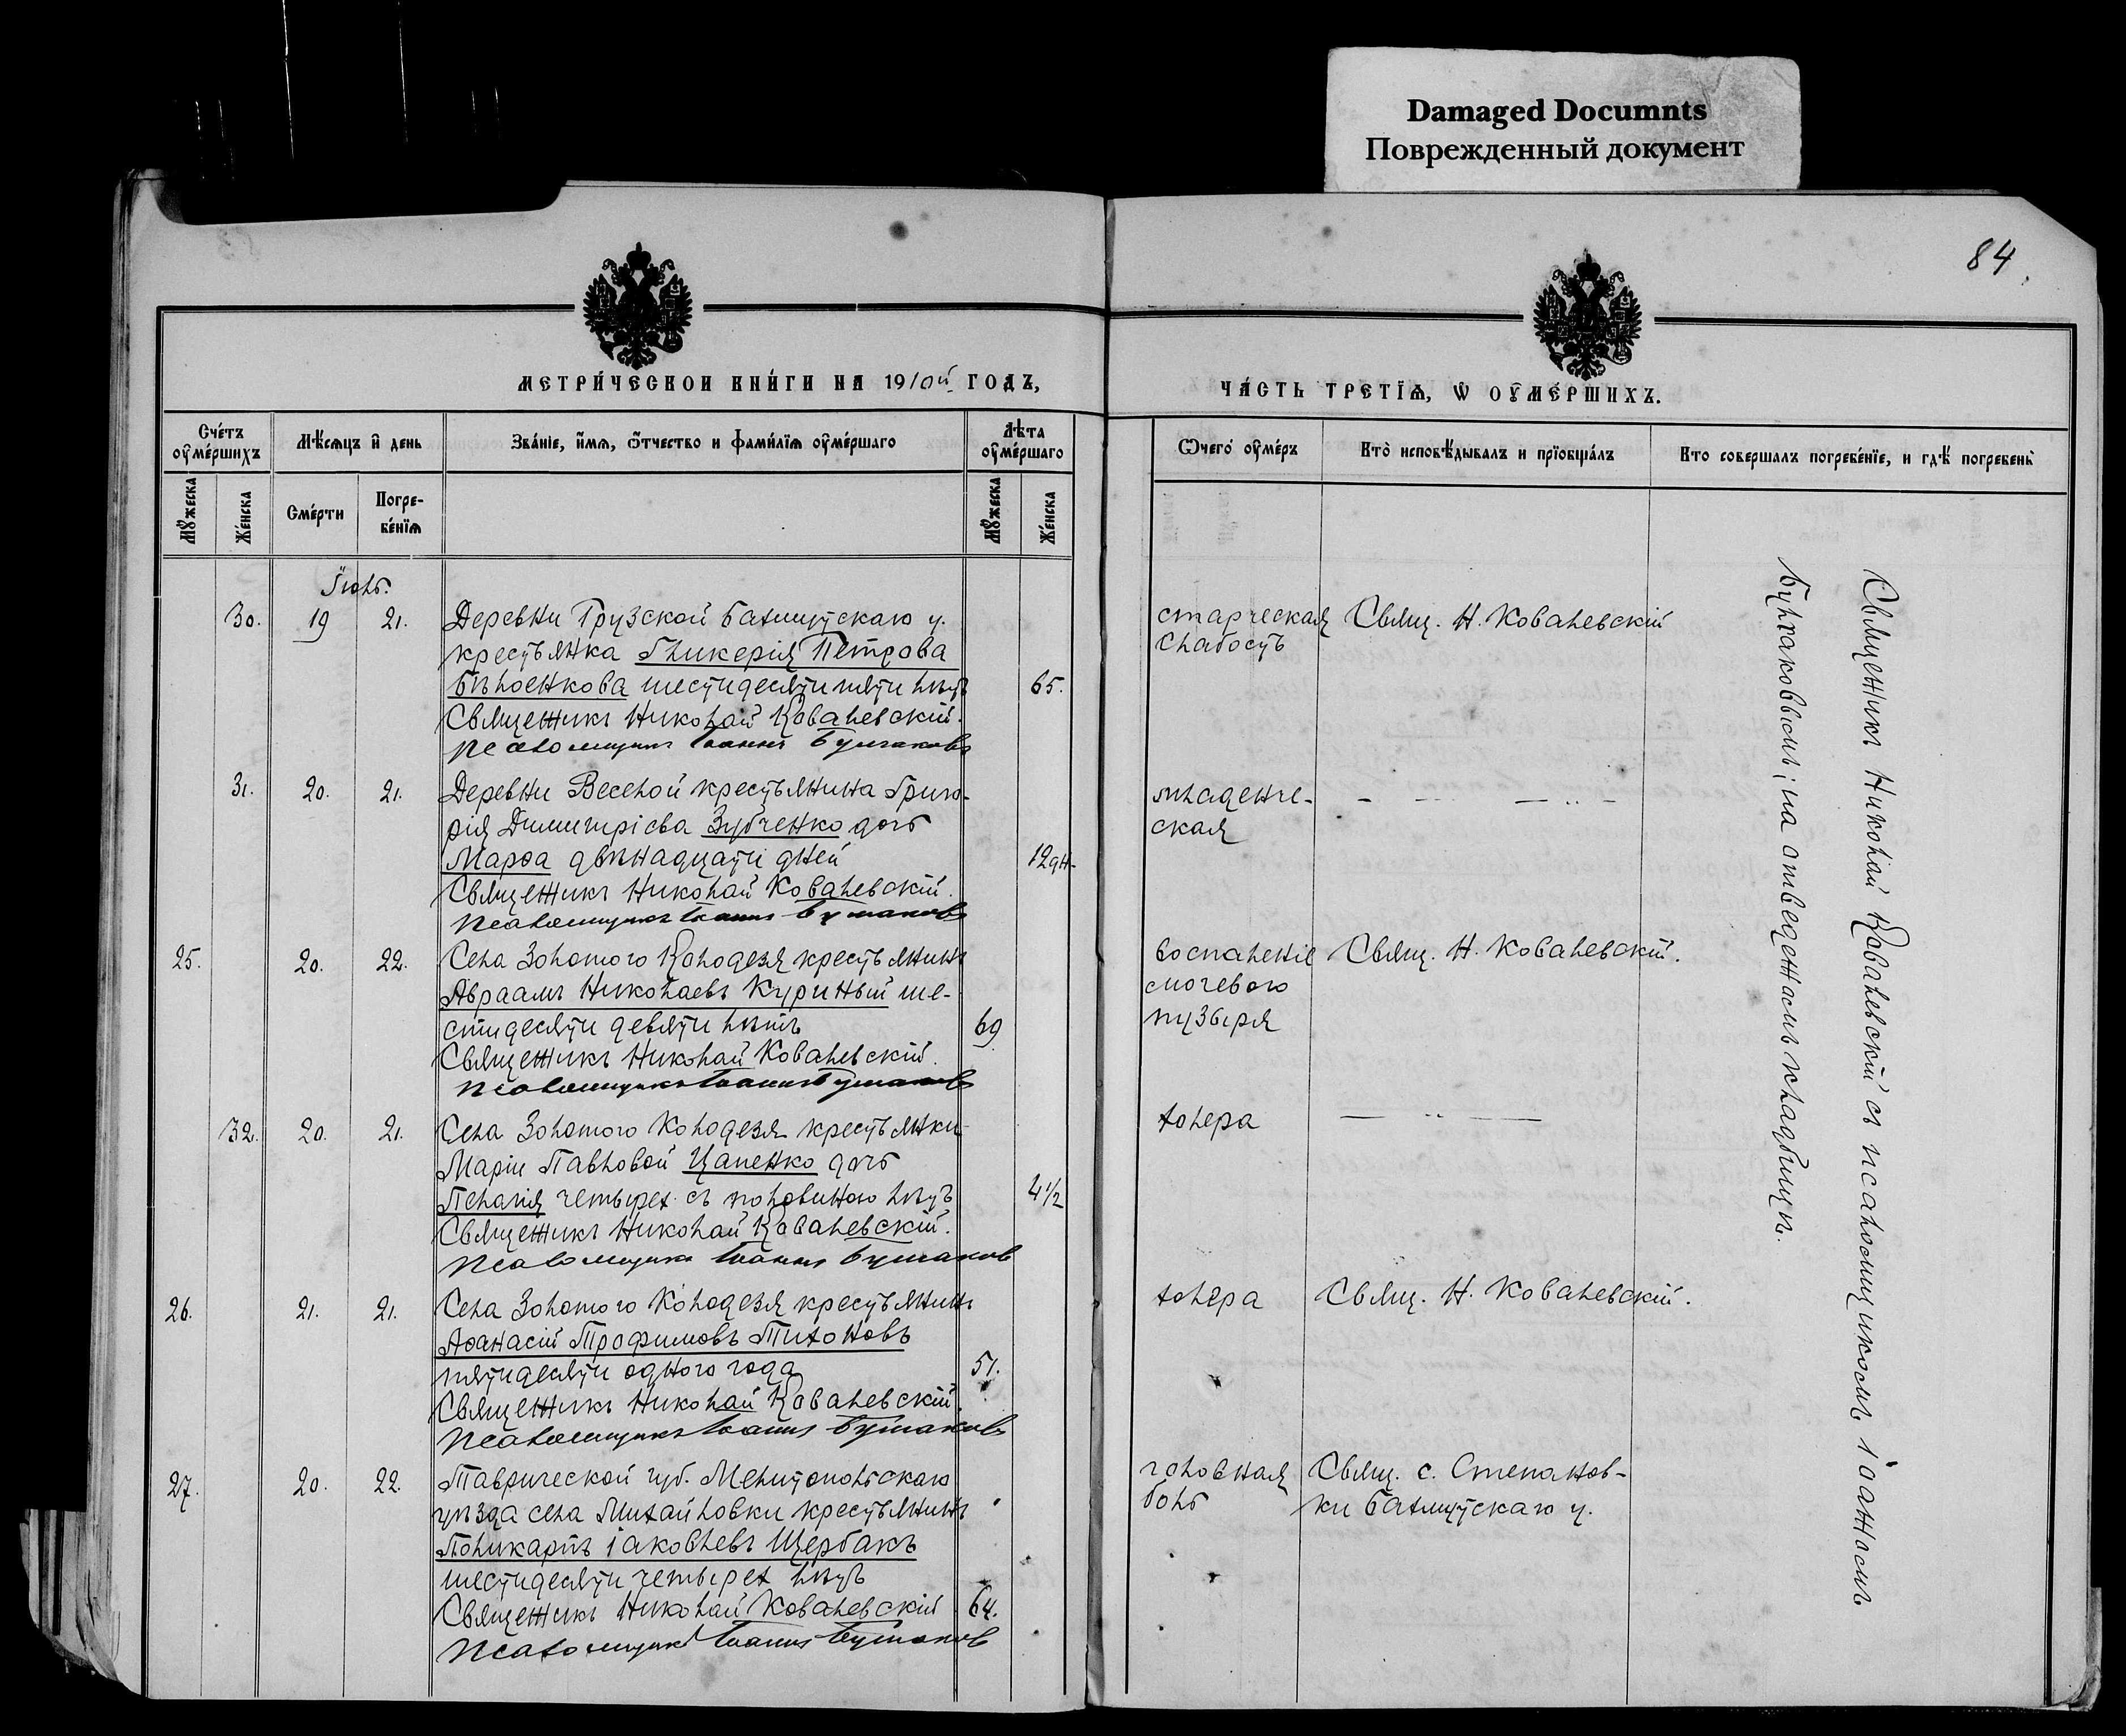 Damaged Documnts
Поврежденный документ
84.
МЕТРИЧЕСКОЙ КНИГИ НА 1910й ГОДЪ,
ЧАСТЬ ТРЕТІЯ, Ѡ ОУМЕРШИХЪ.
Счетъ оумершихъ
Мѣсяцъ и день
Званіе, имя, ѿтчество и фамилія оумершаго
Лѣта оумершаго
Ѿчего оумеръ
Кто исповѣдывалъ и пріобщалъ
Кто совершалъ погребеніе, и гдѣ погребены
Мꙋжеска
Женска
Смерти
Погре-
бенія
Мꙋжеска
Женска
Іюнь.
30. 19 21. Деревни Грузской Бахмутскаго у.
крестьянка Гликерія Петрова
Бѣлоенкова шестидесяти пяти лѣтъ 65.
Священникъ Николай Ковалевскій.
Псаломщикъ Іоаннъ Булгаковъ
старческая
слабость
Свящ. Н. Ковалевскій
31. 20. 21. Деревни Веселой крестьянина Григо-
рія Димитріева Зубченко дочь
Марѳа двѣнадцати дней 12 дн.
Священникъ Николай Ковалевскій.
Псаломщикъ Іоаннъ Булгаковъ
младенче-
ская
25. 20. 22. Села Золотого Колодезя крестьянинъ
Авраамъ Николаевъ Куриный ше-
стидесяти девяти лѣтъ 69
Священникъ Николай Ковалевскій.
Псаломщикъ Іоаннъ Булгаковъ
воспаленіе
мочевого
пузыря
Свящ. Н. Ковалевскій.
32. 20. 21. Села Золотого Колодезя крестьянки
Маріи Павловой Цапенко дочь
Пелагія четырех съ половиною лѣтъ 4 1/2
Священникъ Николай Ковалевскій.
Псаломщикъ Іоаннъ Булгаковъ
холера
26. 21. 21. Села Золотого Колодезя крестьянинъ
Аѳанасій Трофимовъ Тихоновъ
пятидесяти одного года 51.
Священникъ Николай Ковалевскій.
Псаломщикъ Іоаннъ Булгаковъ
холера
Свящ. Н. Ковалевскій.
27. 20. 22. Таврической губ. Мелитопольскаго
уѣзда села Михайловки крестьянинъ
Поликарпъ Іаковлевъ Щербакъ
шестидесяти четырех лѣтъ
Священникъ Николай Ковалевскій 64.
Псаломщикъ Іоаннъ Булгаковъ
головная
боль
Свящ. с. Степанов-
ки Бахмутскаго у.
Священникъ Николай Ковалевскій съ псаломщикомъ Іоанномъ
Булгаковымъ; на отведенномъ кладбищѣ.